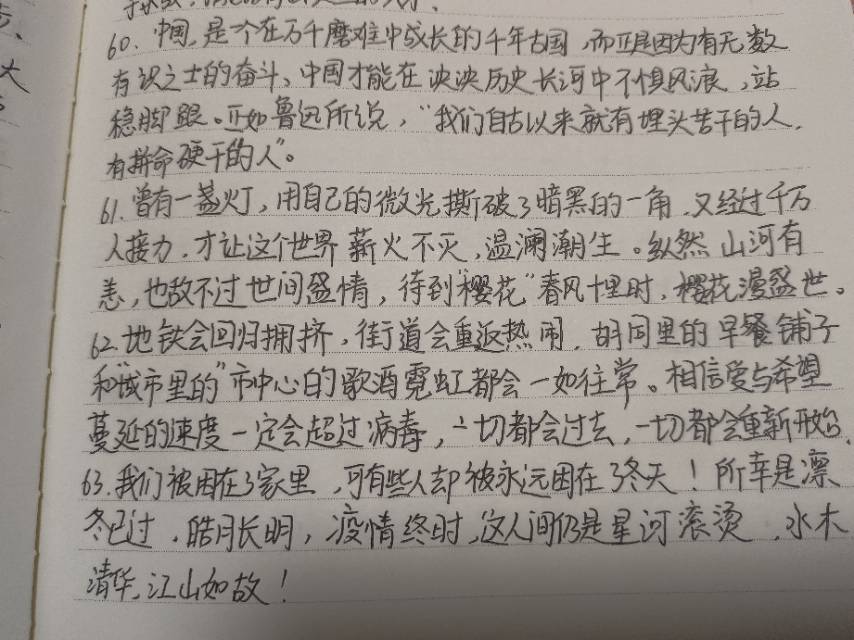 60. 中国，是个在万千磨难中成长的千年古国，而正是因为有无数
有识之士的奋斗，中国才能在泱泱历史长河中不惧风浪，站
稳脚跟。正如鲁迅所说，“我们自古以来就有埋头苦干的人，
有拼命硬干的人”。
61. 曾有一盏灯，用自己的微光撕破了暗黑的一角，又经过千万
人接力，才让这个世界薪火不灭，温澜潮生。纵然山河有
恙，也敌不过世间盛情，待到“樱花”春风十里时，樱花漫盛世。
62. 地铁会回归拥挤，街道会重返热闹，胡同里的早餐铺子
和“城市里的”市中心的歌酒霓虹都会一如往常。相信爱与希望
蔓延的速度一定会超过病毒，一切都会过去，一切都会重新开始。
63. 我们被困在了家里，可有些人却被永远困在了冬天！所幸是凛
冬已过，皓月长明，疫情终时，这人间仍是星河滚烫，水木
清华，江山如故！